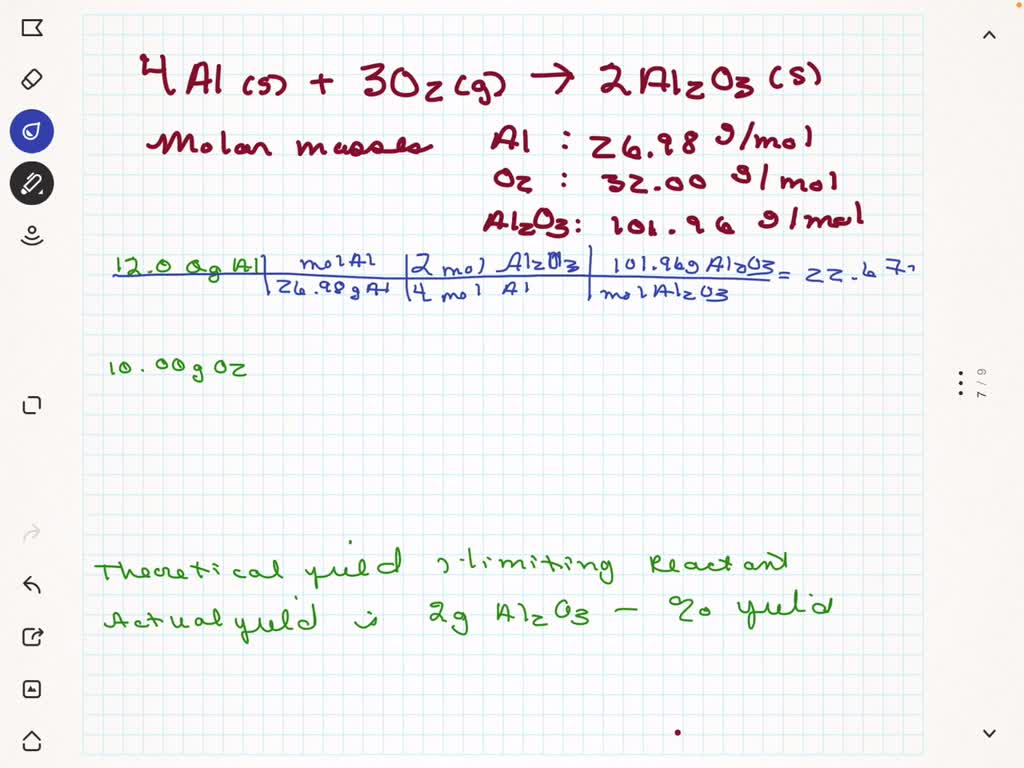 4Al (s) + 3O2 (g) → 2Al2O3 (s)
Molar masses Al : 26.98 g/mol
O2 : 32.00 g/mol
Al2O3: 101.96 g/mol
12.00g Al | mol Al | 2 mol Al2O3 | 101.96g Al2O3 = 22.67
26.98g Al | 4 mol Al | mol Al2O3
10.00g O2
Theoretical yield ; limiting Reactant
Actual yield is 2g Al2O3 - % yield
7 / 9